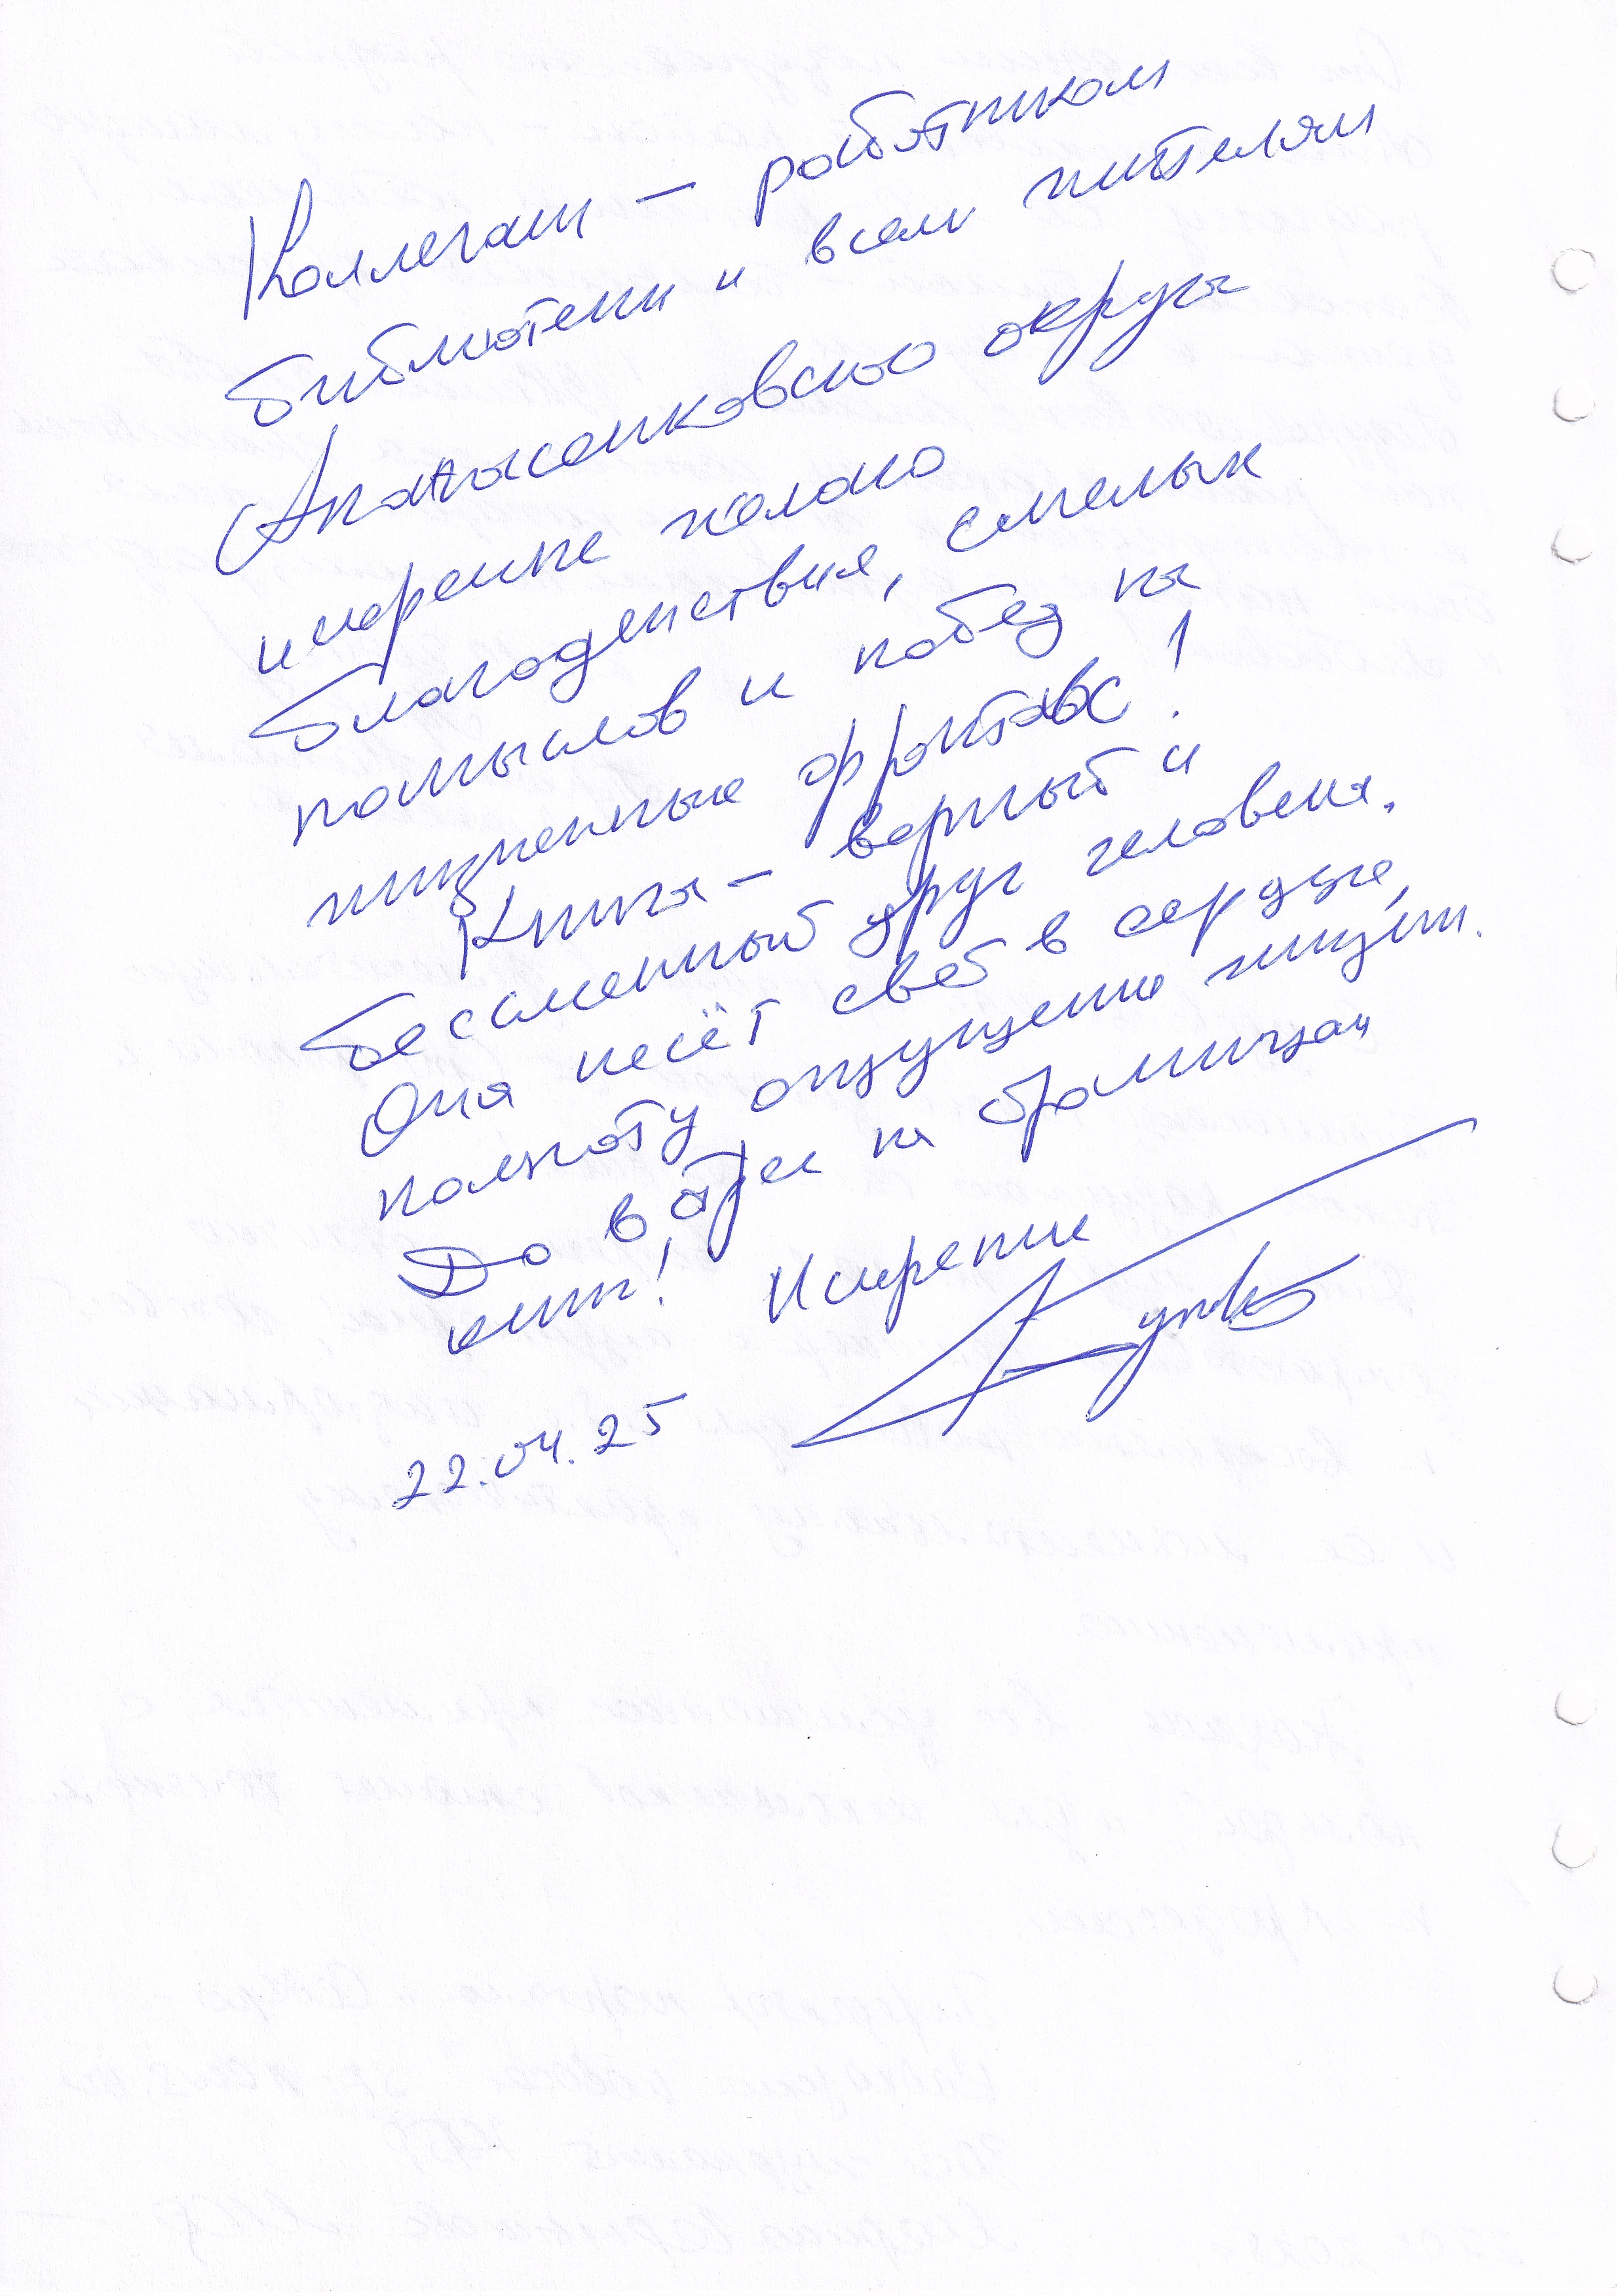 Коллегам – работникам
библиотеки и всем жителям
Апанасенковского округа
искренне желаю
благоденствия, смелых
помыслов и побед на
жизненных фронтах!
Книга – верный и
бессменный друг человека.
Она несёт свет в сердце,
полноту ощущения жизни.
До встречи на страницах
книг! Искренне
22.04.25